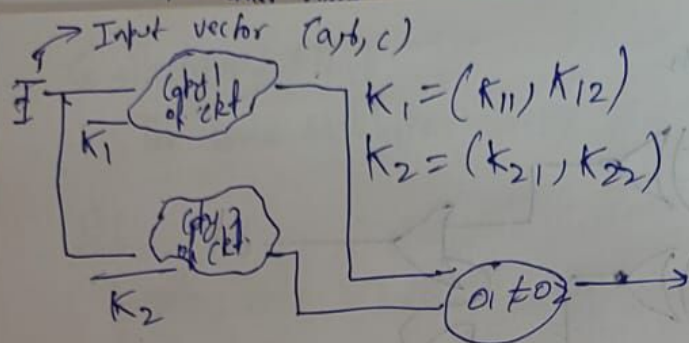 Input vector (a,b,c)
I
Copy 1
of ckt.
K1
K1 = (K11, K12)
K2 = (K21, K22)
Copy 2
of ckt.
K2
O1 ≠ O2